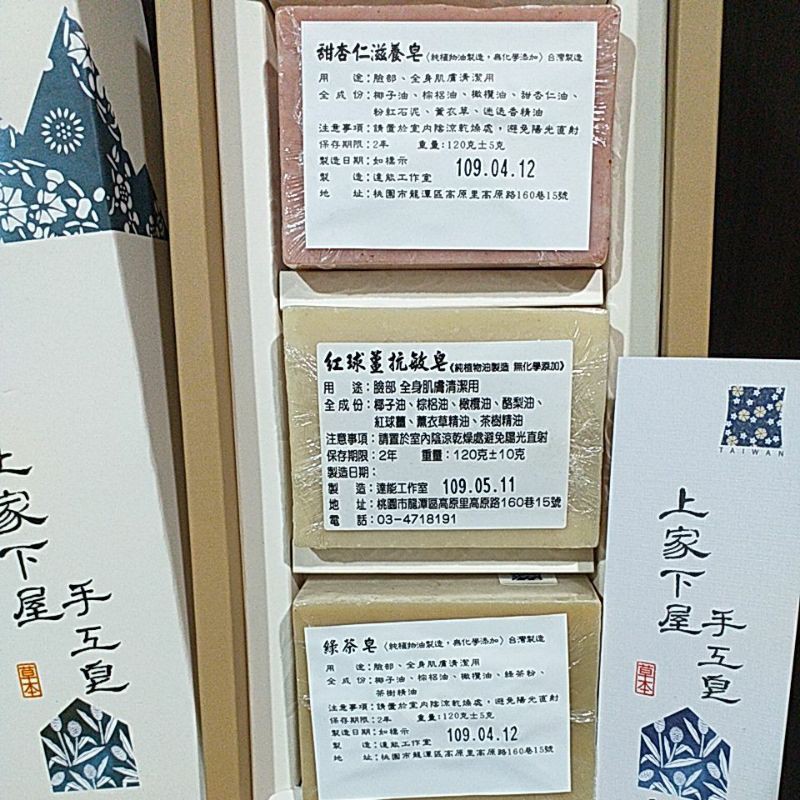 甜杏仁滋養皂（純植物油製造，無化學添加）台灣製造
用　途：臉部、全身肌膚清潔用
全成份：椰子油、棕梠油、橄欖油、甜杏仁油、
粉紅石泥、薰衣草、迷迭香精油
注意事項：請置於室內陰涼乾燥處，避免陽光直射
保存期限：2年　重量：120克±5克
製造日期：如標示　109.04.12
製　造：達能工作室
地　址：桃園市龍潭區高原里高原路160巷15號
紅球薑抗敏皂《純植物油製造 無化學添加》
用　途：臉部 全身肌膚清潔用
全成份：椰子油、棕梠油、橄欖油、酪梨油、
紅球薑、薰衣草精油、茶樹精油
注意事項：請置於室內陰涼乾燥處避免陽光直射
保存期限：2年　重量：120克±10克
製造日期：
製　造：達能工作室　109.05.11
地　址：桃園市龍潭區高原里高原路160巷15號
電　話：03-4718191
綠茶皂（純植物油製造，無化學添加）台灣製造
用　途：臉部、全身肌膚清潔用
全成份：椰子油、棕梠油、橄欖油、綠茶粉、
茶樹精油
注意事項：請置於室內陰涼乾燥處，避免陽光直射
保存期限：2年　重量：120克±5克
製造日期：如標示
製　造：達能工作室　109.04.12
地　址：桃園市龍潭區高原里高原路160巷15號
上家下屋
手工皂
草本
TAIWAN
上家下屋
手工皂
草本